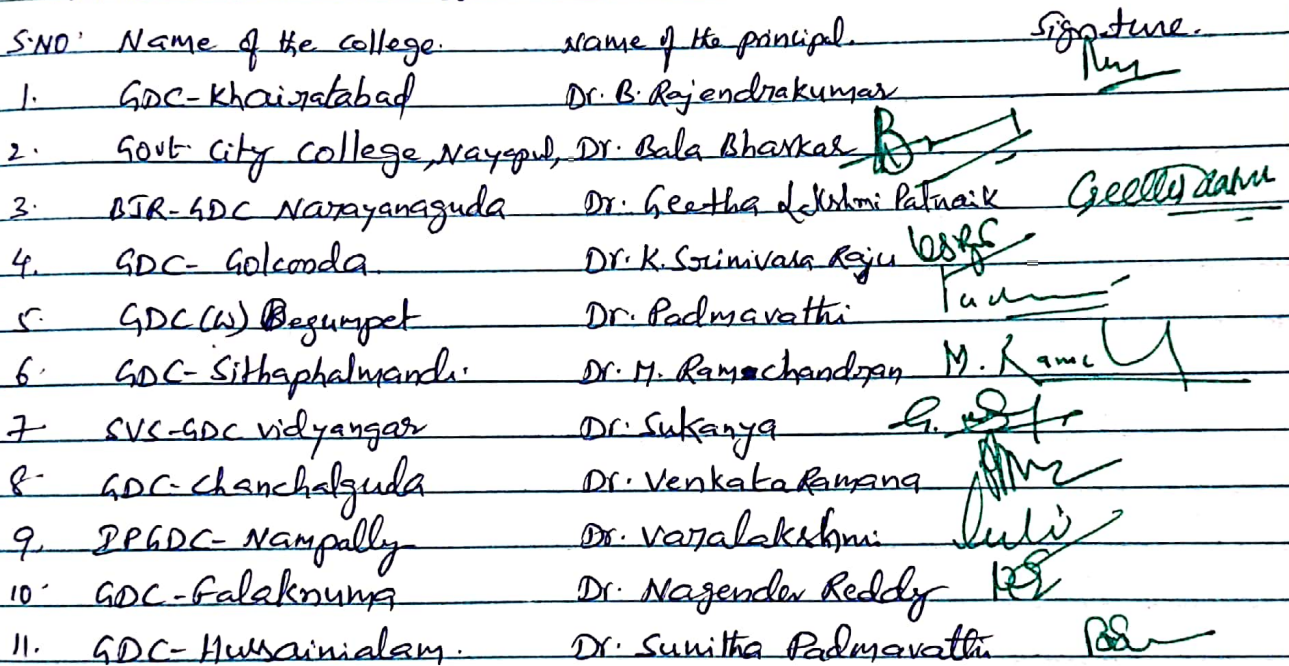 S.NO. Name of the college. Name of the principal. Signature.
1. GDC-Khairatabad Dr. B. Rajendrakumar
2. Govt City College, Nayapul, Dr. Bala Bhaskar
3. BJR-GDC Narayanaguda Dr. Geetha Lakshmi Patnaik
4. GDC- Golconda. Dr. K. Srinivasa Raju
5. GDC (W) Begumpet Dr. Padmavathi
6. GDC- Sithaphalmandi. Dr. M. Ramachandran M. Rama
7 SVS-GDC vidyangar Dr. Sukanya
8 GDC- Chanchalguda Dr. Venkata Ramana
9. IPGDC- Nampally Dr. Varalakshmi
10. GDC-Falaknuma Dr. Nagender Reddy
11. GDC- Hussainialam. Dr. Sunitha Padmavathi